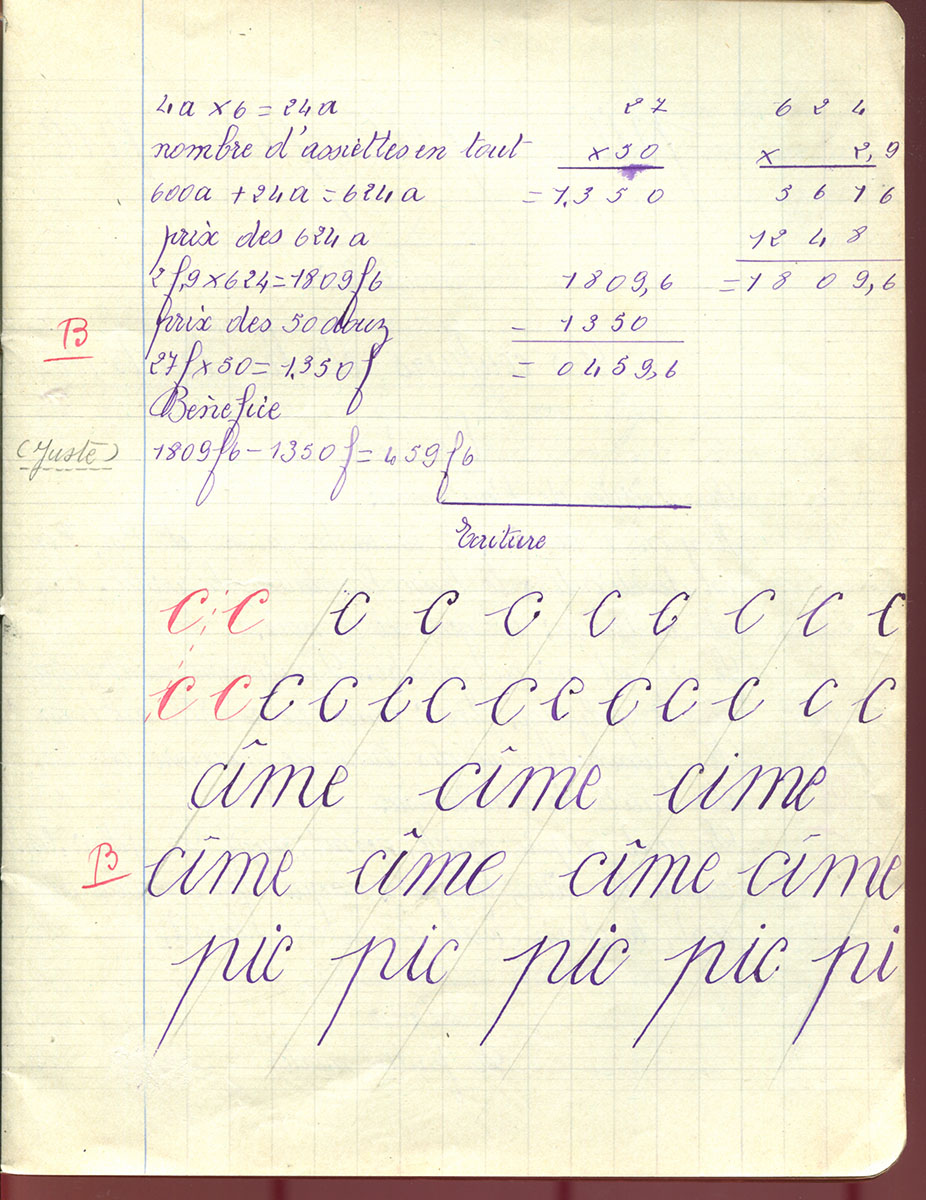 4a x 6 = 24a
nombre d'assiettes en tout
600a + 24a = 624a
prix des 624a
2f,9 x 624 = 1809f6
prix des 50 douz
27f x 50 = 1.350f
Bénéfice
1809f6 - 1350f = 459f6
27
x 50
= 1.350
624
x 2,9
5616
1248
= 1809,6
1809,6
- 1350
= 0459,6
B
(Juste)
Ecriture
c c c c c c c c c c
c c c c c c c c c c c c c
cîme cîme cime
B
cîme cîme cîme cîme
pic pic pic pic pi